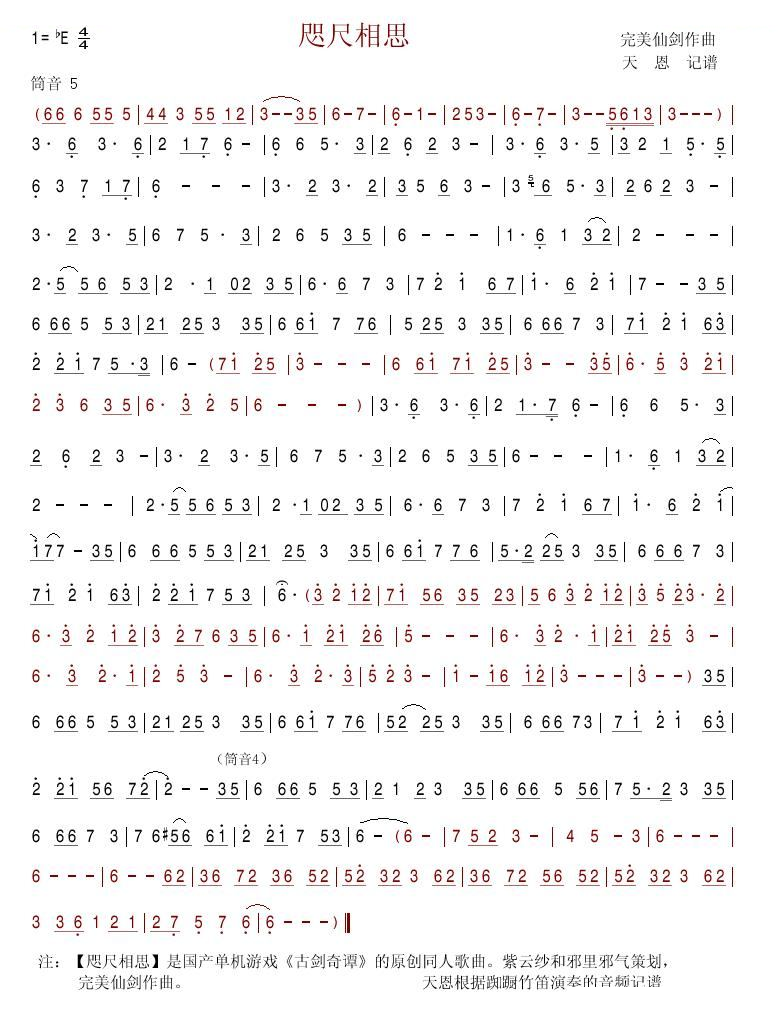 咫尺相思
1= ♭E 4/4
完美仙剑作曲
天 恩 记谱
筒音 5
(66 6 55 5|44 3 55 12|3--35|6-7-|6-1-|253-|6-7-|3--5613|3---)|
3· 6 3· 6|2 17 6 -|6 6 5· 3|2 6 2 3 -|3· 6 3· 5|3 2 1 5·5|
6 3 7 17|6 - - -|3· 2 3· 2|35 6 3 -|3 5 6 5·3|262 3 -|
3· 2 3· 5|6 7 5· 3|2 6 5 35|6 - - -|1·6 1 32|2 - - -|
2·5 56 53|2 ·1 02 35|6·6 7 3|72 1 67|1· 6 21|7 - -35|
6 665 53|21 253 35|6 61 7 76|5 25 3 35|6 667 3|71 21 63|
2 21 7 5·3|6 -(71 25|3 - - -|6 61 71 25|3 - - 35|6·5 3 21|
2 3 6 35|6· 3 2 5|6 - - -)|3·6 3·6|2 1·7 6 -|6 6 5· 3|
2 6 2 3 -|3· 2 3·5|6 7 5·3|2 6 5 35|6 - - -|1·6 1 32|
2 - - -|2·55653|2 ·102 35|6·6 7 3|7 2 1 67|1· 6 2 1|
177 -35|6 66553|21 25 3 35|6 61 7 76|5·2 25 3 35|6 667 3|
71 21 63|2 21 7 53|6·(3 2 12|71 56 35 23|56 3 2 12|3 5 23·2|
6·3 2 12|3 27635|6·1 21 26|5 - - -|6· 32·1|21 25 3 -|
6· 3 2·1|2 5 3 -|6· 3 2·3|523-|1-16 12|3---|3--)35|
6 665 53|21 253 35|6 61 7 76|52 253 35|6 66 73|7 1 21 63|
（筒音4）
2 21 56 72|2--35|6 665 53|21 23 35|6 66 5 56|75·23 35|
6 66 7 3|7 6#56 61|2 21 7 53|6 - (6 -|7 52 3 -|4 5 -3|6---|
6 ---|6 --62|36 72 36 52|52 32 3 62|36 72 56 52|52 32 3 62|
3 36 1 21|27 5 7 6|6 ---)‖
注：【咫尺相思】是国产单机游戏《古剑奇谭》的原创同人歌曲。紫云纱和邪里邪气策划，
完美仙剑作曲。 天恩根据踟蹰竹笛演奏的音频记谱